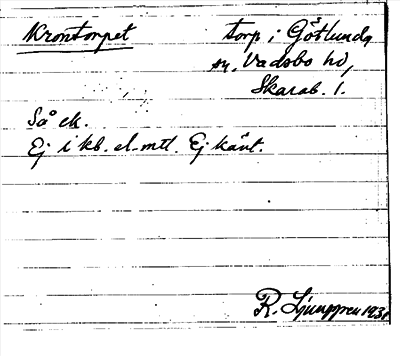 Krontorpet torp i Götlunda
sn, Vadsbo hd,
Skarab. l.
Så ek.
Ej i kb. el. mtl. Ej känt.
R. Ljunggren 1931